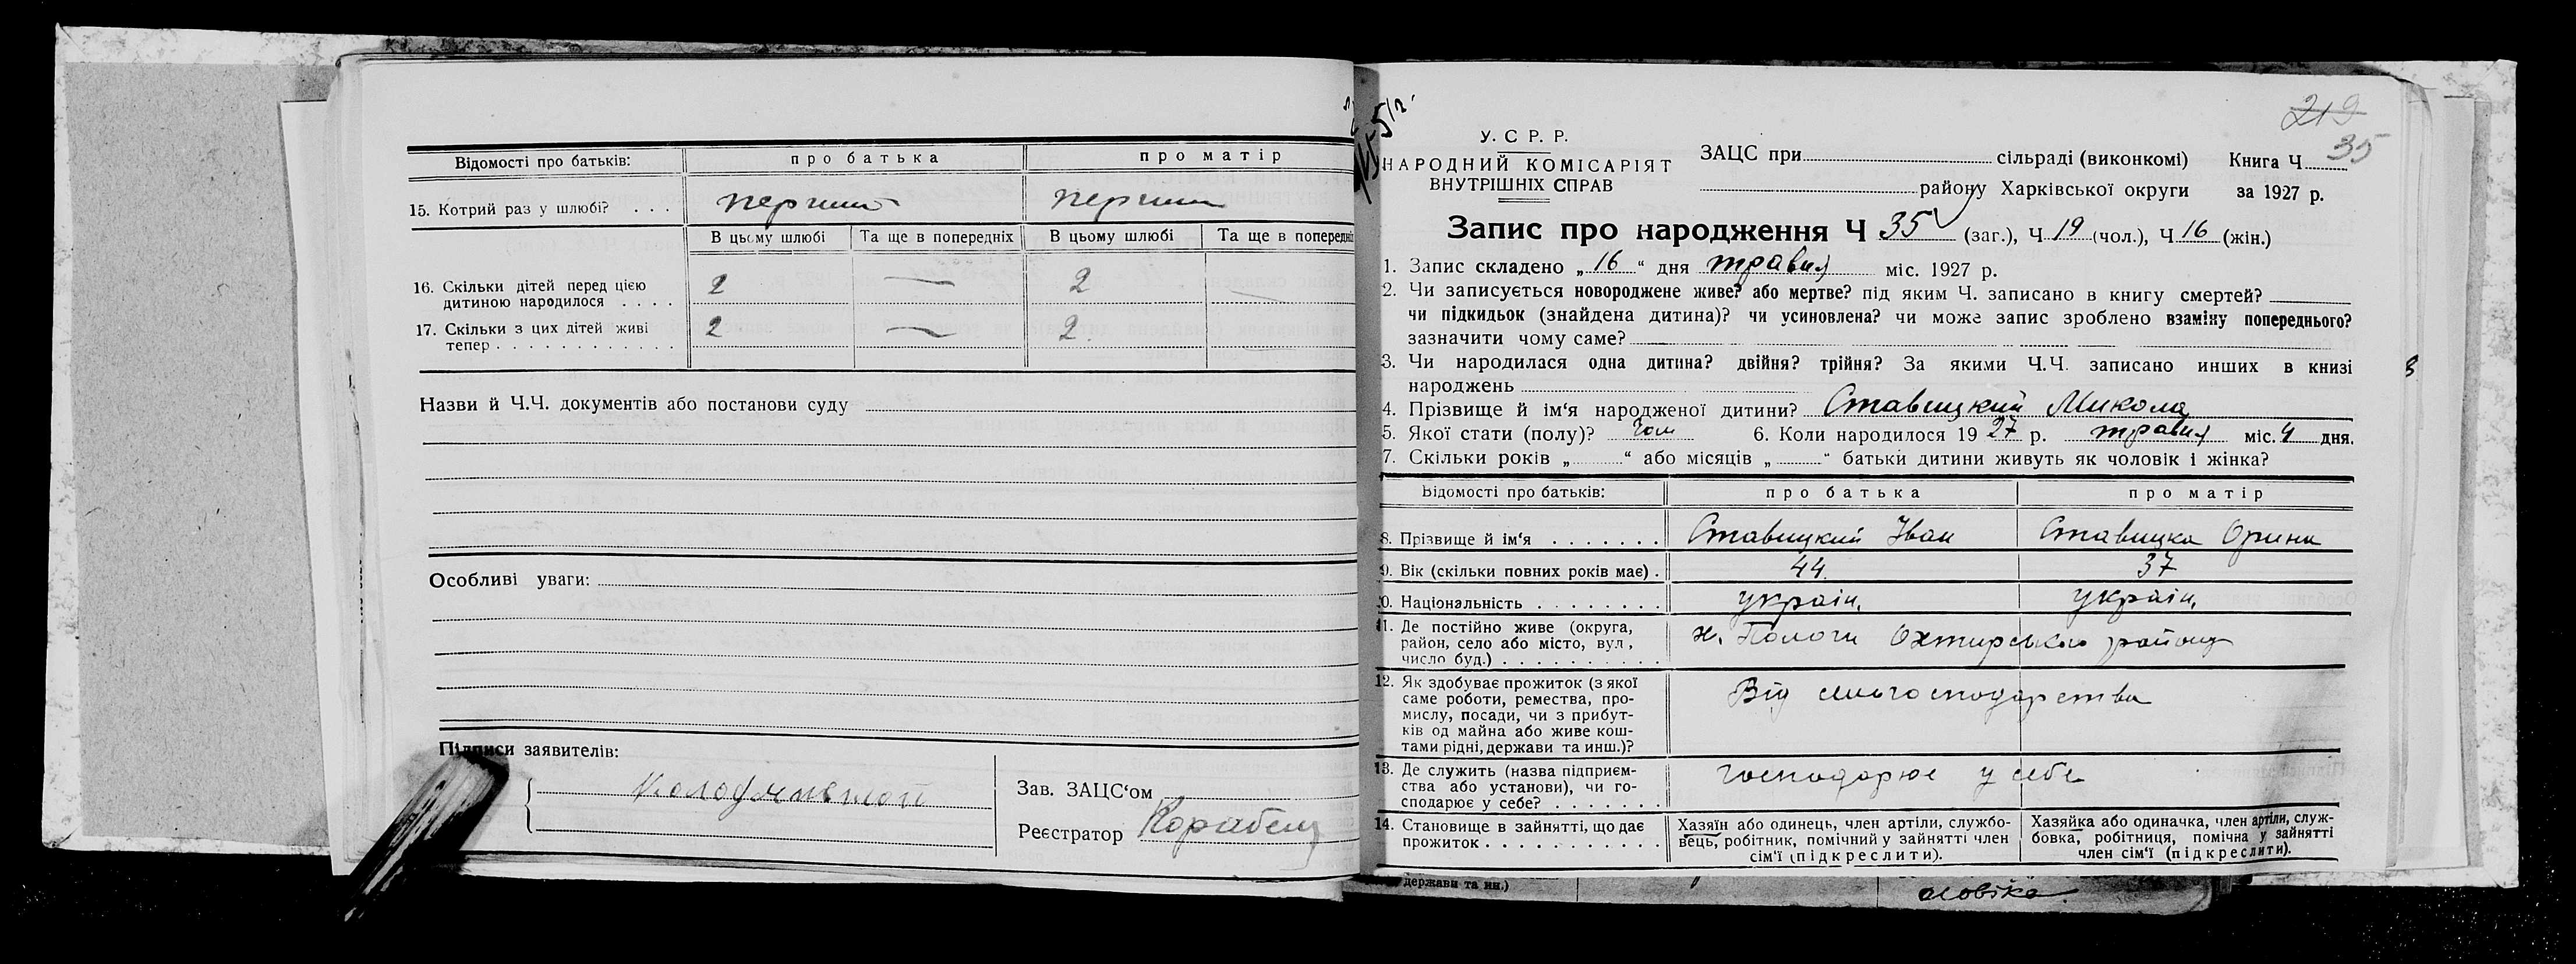 Відомості про батьків: про батька про матір
15. Котрий раз у шлюбі? . . . перший перший
В цьому шлюбі Та ще в попередніх В цьому шлюбі Та ще в попередніх
16. Скільки дітей перед цією
дитиною народилося . . . . 2 — 2 —
17. Скільки з цих дітей живі 2 — 2
тепер . . . . . . . . . . . .
Назви й Ч.Ч. документів або постанови суду
Особливі уваги:
Підписи заявителів:
Зав. ЗАЦС‘ом
Реєстратор Корабель
219
35
У. С. Р. Р.
НАРОДНИЙ КОМІСАРІЯТ
ВНУТРІШНІХ СПРАВ
ЗАЦС при сільраді (виконкомі) Книга Ч
району Харківської округи за 1927 р.
Запис про народження Ч 35 (заг.), Ч 19 (чол.), Ч 16 (жін.)
1. Запис складено „16“ дня травня міс. 1927 р.
2. Чи записується новороджене живе? або мертве? під яким Ч. записано в книгу смертей?
чи підкидьок (знайдена дитина)? чи усиновлена? чи може запис зроблено взаміну попереднього?
зазначити чому саме?
3. Чи народилася одна дитина? двійня? трійня? За якими Ч.Ч. записано инших в книзі
народжень
4. Прізвище й ім‘я народженої дитини? Ставицкий Микола
5. Якої стати (полу)? Чол 6. Коли народилося 1927 р. травня міс. 4 дня.
7. Скільки років „ “ або місяців „ “ батьки дитини живуть як чоловік і жінка?
Відомості про батьків: про батька про матір
8. Прізвище й ім‘я . . . . . . . Ставицкий Іван Ставицка Орина
9. Вік (скільки повних років має) . 44 37
10. Національність . . . . . . . . україн. україн.
11. Де постійно живе (округа,
район, село або місто, вул., х. Пологи Охтирського району
число буд.) . . . . . . . . . .
12. Як здобуває прожиток (з якої
саме роботи, ремества, про- Від сільгосподарства
мислу, посади, чи з прибут-
ків од майна або живе кош-
тами рідні, держави та инш.)?
13. Де служить (назва підприєм- господарює у себе
ства або установи), чи го-
сподарює у себе? . . . . . . .
14. Становище в зайнятті, що дає
прожиток . . . . . . . . . . .
Хазяїн або одинець, член артіли, службо-
вець, робітник, помічний у зайнятті член
сім‘ї (підкреслити).
Хазяйка або одиначка, член артіли, служ-
бовка, робітниця, помічна у зайнятті
член сім‘ї (підкреслити).
держави та ин.)